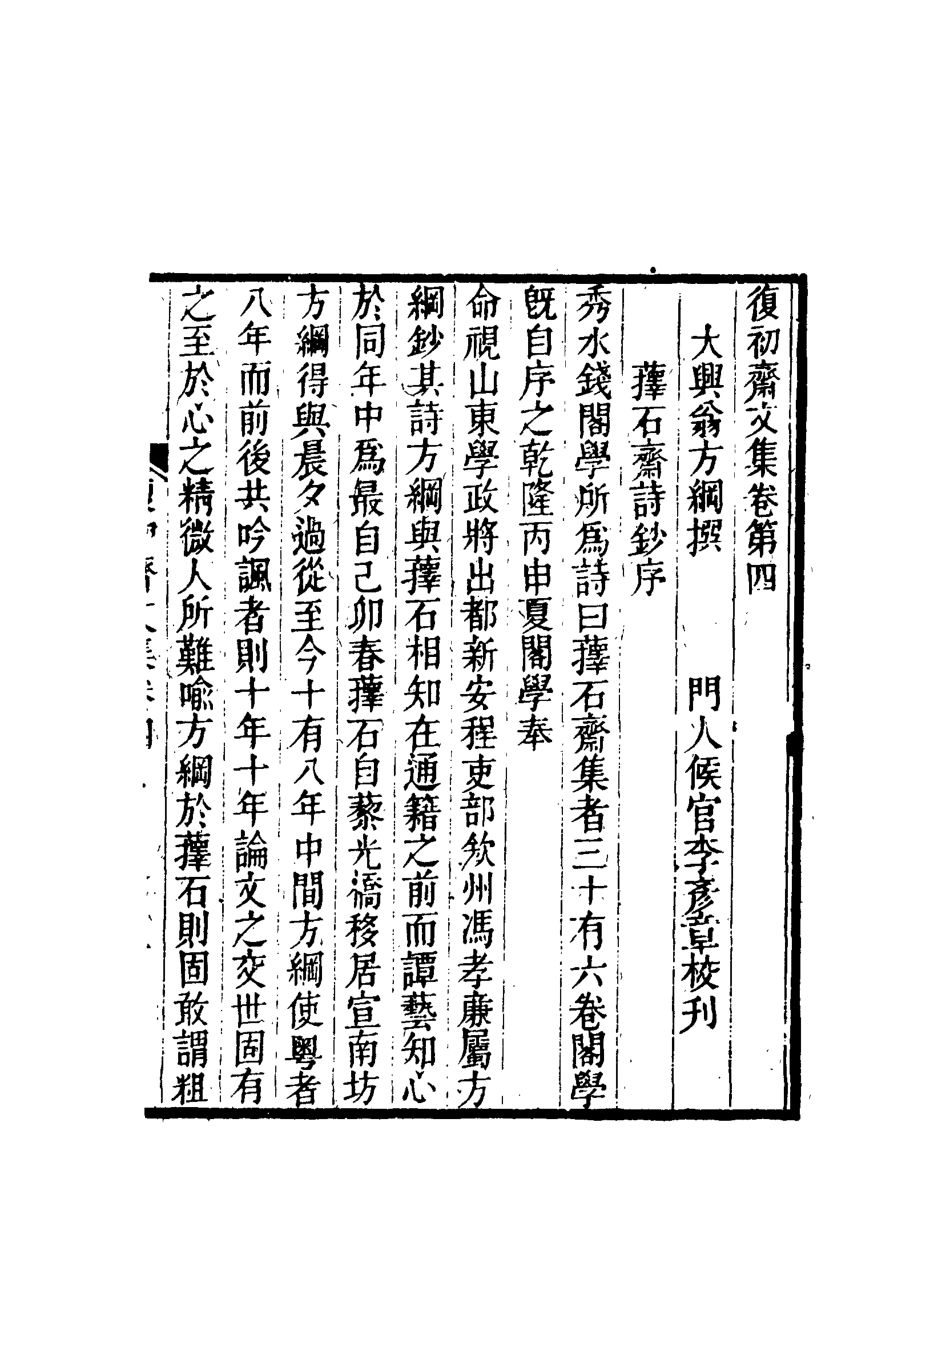 復初齋文集卷第四
大興翁方綱撰　門人候官李彥章校刊
蘀石齋詩鈔序
秀水錢閣學所爲詩曰蘀石齋集者三十有六卷閣學
旣自序之乾隆丙申夏閣學奉
命視山東學政將出都新安程吏部欸州馮孝廉屬方
綱鈔其詩方綱與蘀石相知在通籍之前而譚藝知心
於同年中爲最自己卯春蘀石自藜光橋移居宣南坊
方綱得與晨夕過從至今十有八年中間方綱使粤者
八年而前後共吟諷者則十年十年論文之交世固有
之至於心之精微人所難喩方綱於蘀石則固敢謂粗